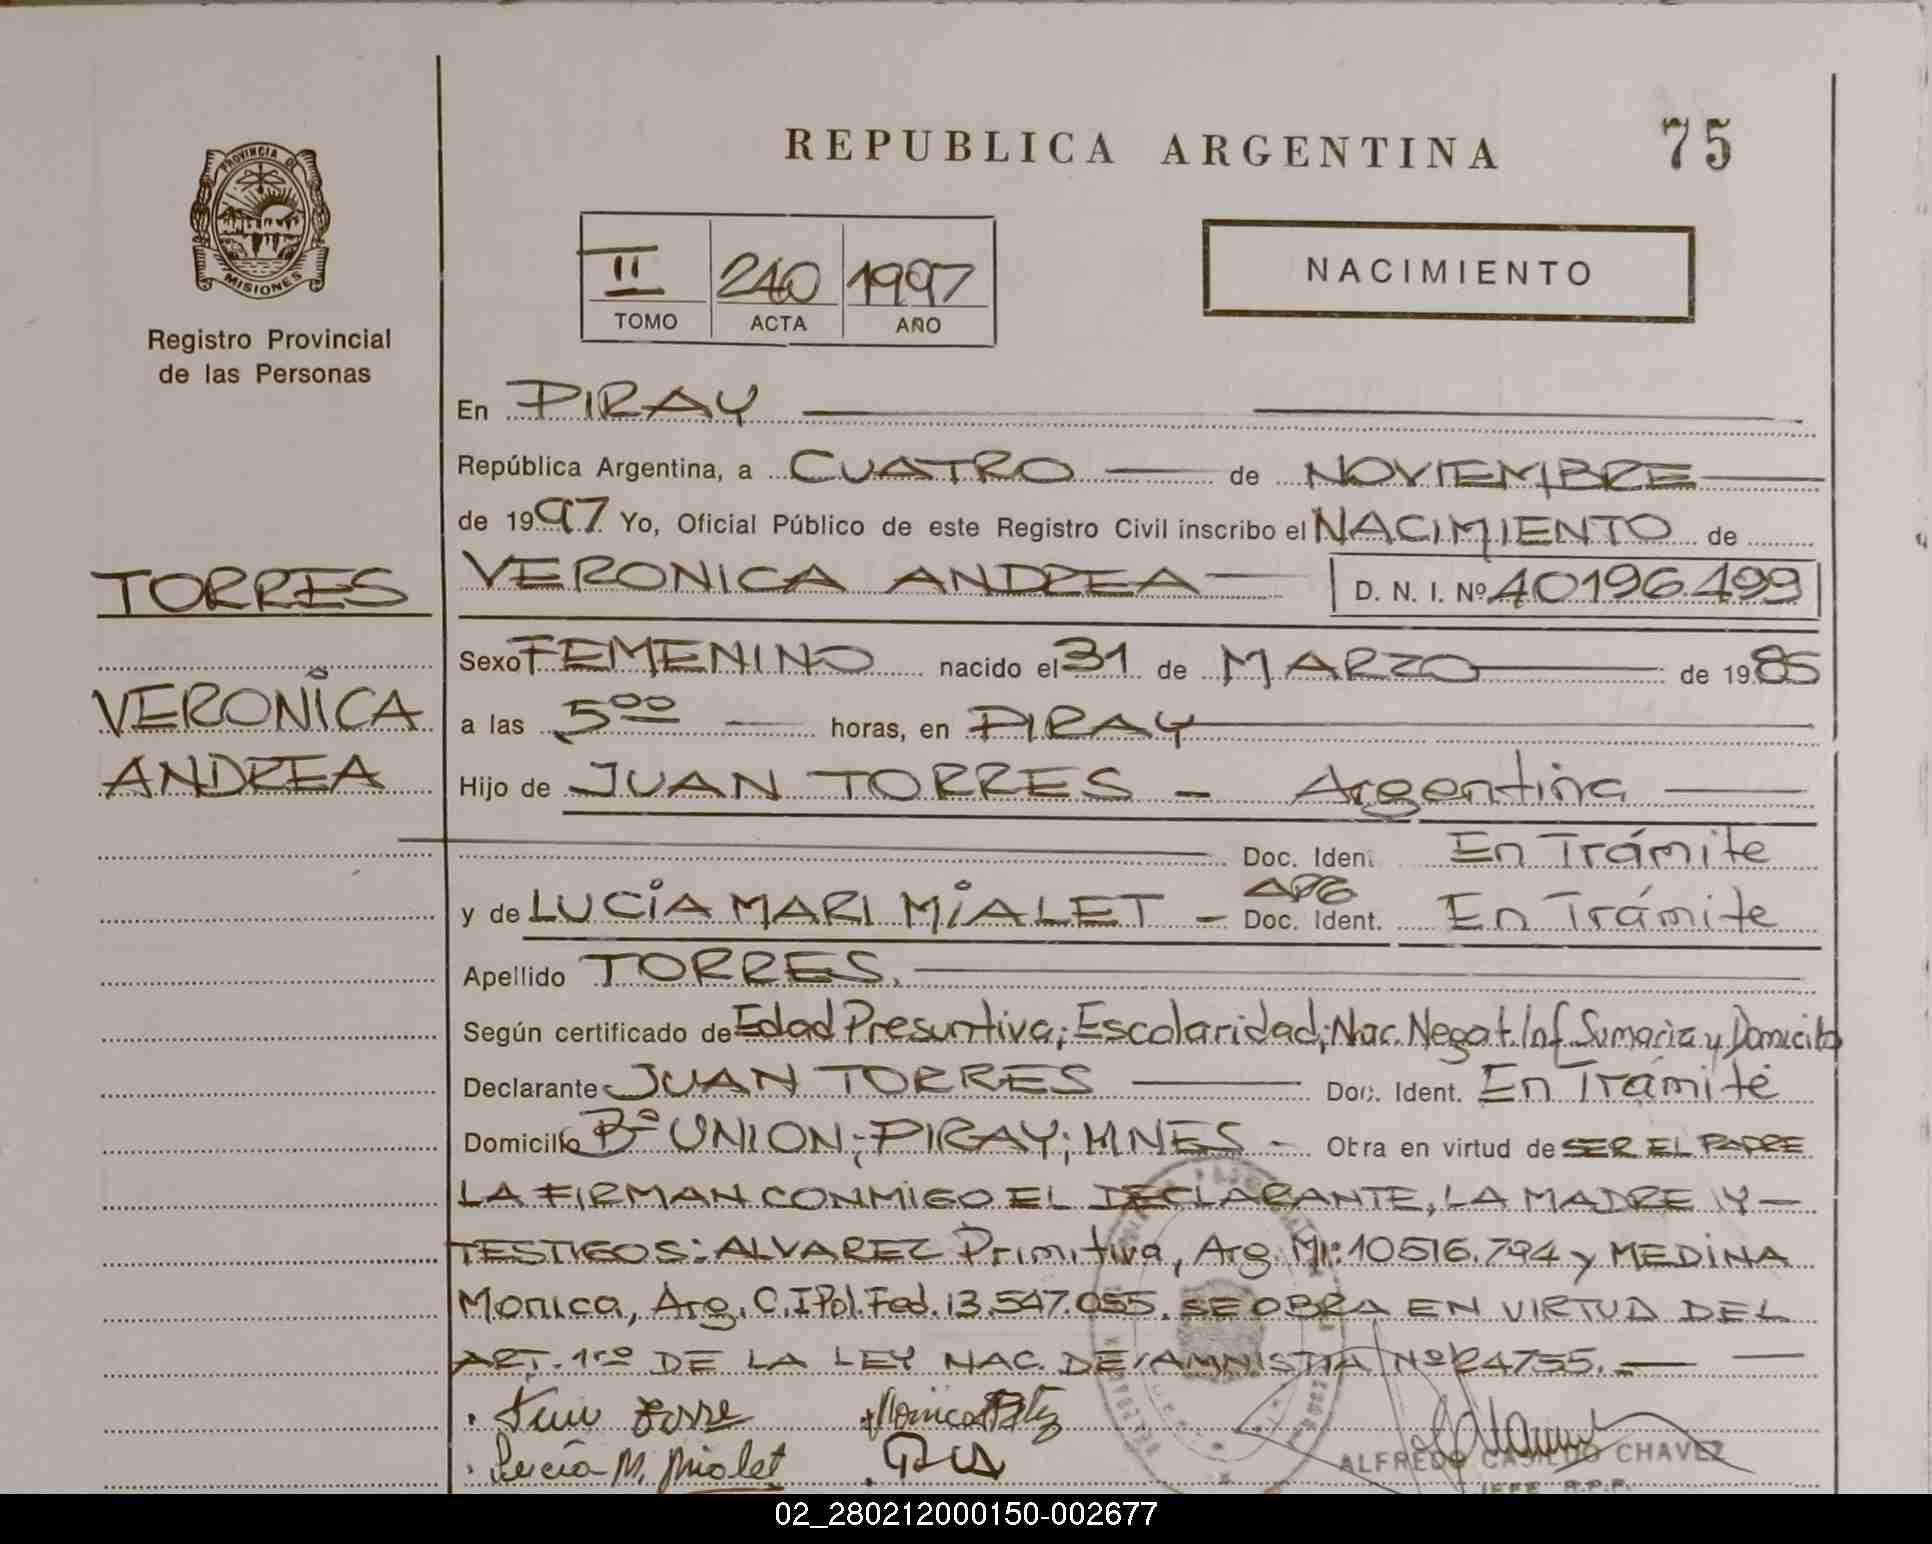 REPUBLICA ARGENTINA
75
PROVINCIA DE
MISIONES
Registro Provincial
de las Personas
II 240 1997
TOMO ACTA AÑO
NACIMIENTO
En PIRAY
República Argentina, a CUATRO de NOVIEMBRE
de 1997 Yo, Oficial Público de este Registro Civil inscribo el NACIMIENTO de
TORRES
VERONICA ANDREA D. N. I. Nº 40196.499
Sexo FEMENINO nacido el 31 de MARZO de 1985
VERONICA
a las 5 00 horas, en PIRAY
ANDREA
Hijo de JUAN TORRES - Argentina
Doc. Ident. En Trámite
y de LUCIA MARI MIALET - ARG Doc. Ident. En Trámite
Apellido TORRES.
Según certificado de Edad Presuntiva; Escolaridad; Nac. Negat. Inf. Sumaria y Domicilio
Declarante JUAN TORRES Doc. Ident. En Trámite
Domicilio Bº UNION; PIRAY; MNES - Obra en virtud de SER EL PADRE
LA FIRMAN CONMIGO EL DECLARANTE, LA MADRE Y -
TESTIGOS: ALVAREZ Primitiva, Arg. MI: 10516.794 y MEDINA
Monica, Arg. C.I Pol. Fed. 13.547.055. SE OBRA EN VIRTUD DEL
ART. 1ro DE LA LEY NAC. DE AMNISTIA Nº 24755. -
Lucía M. Mialet
ALFREDO CASILDO CHAVEZ
JEFE R.P.P.
02_280212000150-002677